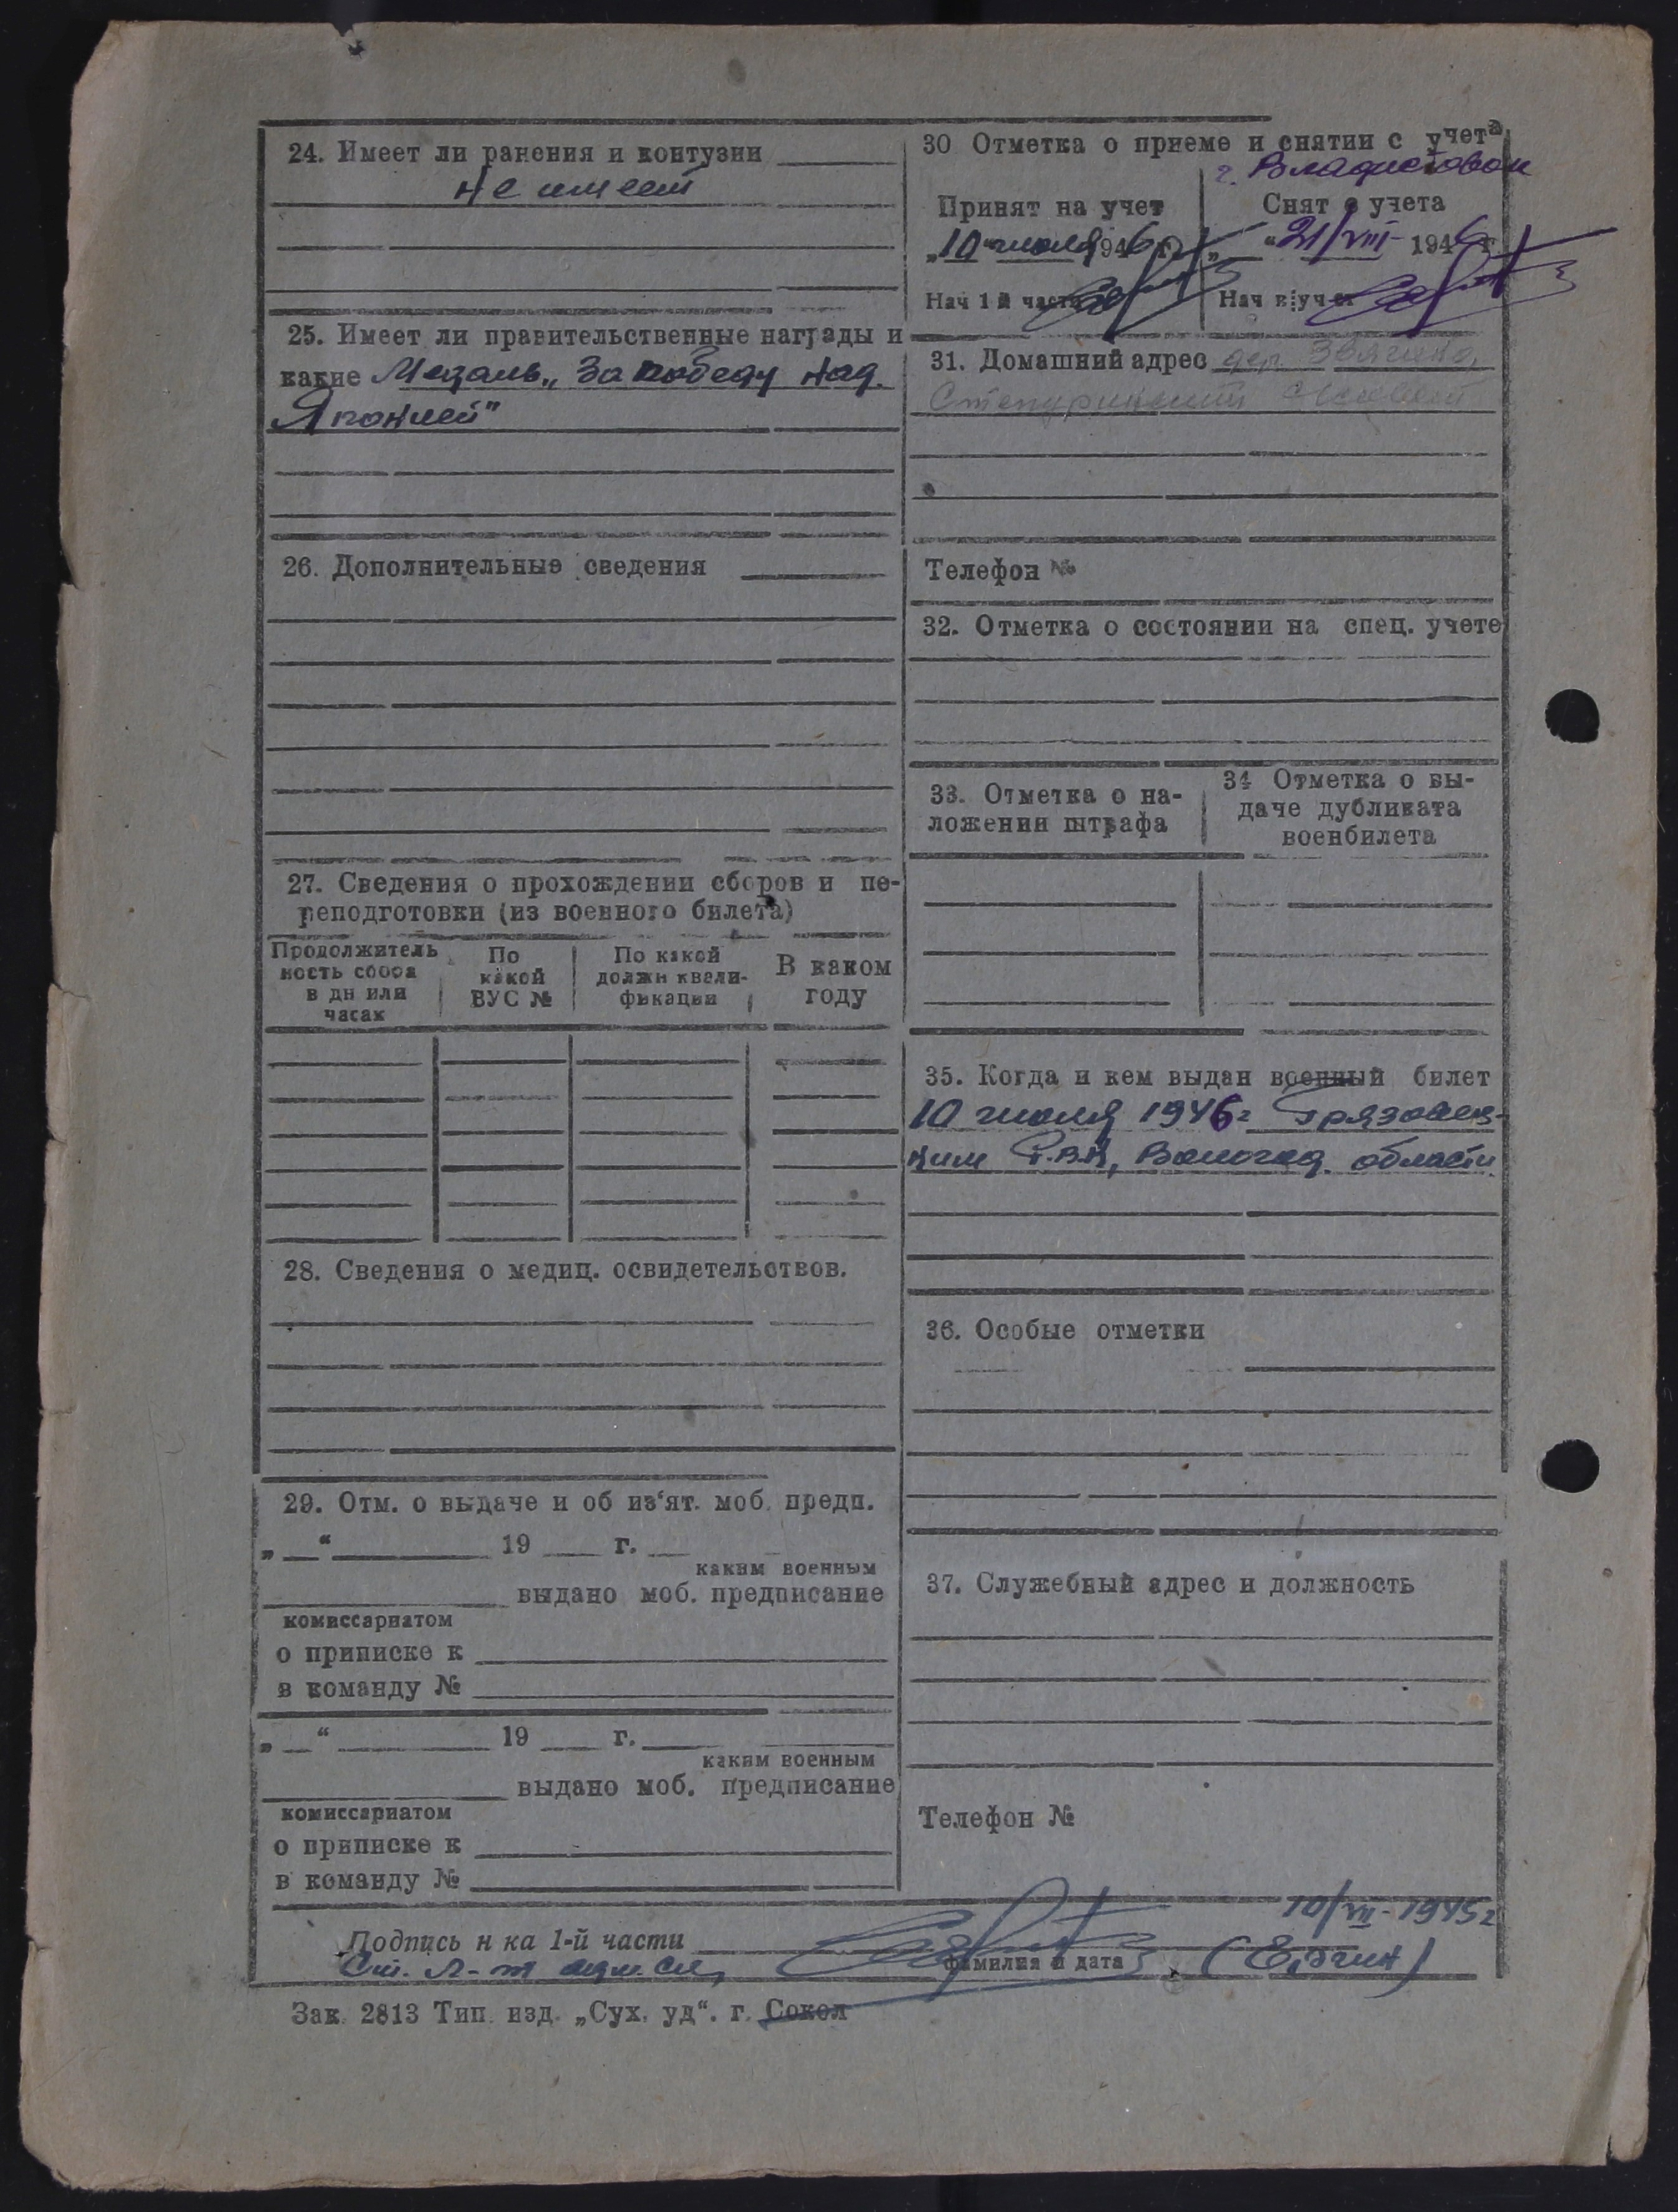 24. Имеет ли ранения и контузии
не имеет
25. Имеет ли правительственные награды и
какие Медаль „За победу над
Японией"
26. Дополнительные сведения
27. Сведения о прохождении сборов и пе-
реподготовки (из военного билета)
Продолжитель
ность сбора
в дн или
часах
По
какой
ВУС №
По какой
должн квали-
фикации
В каком
году
28. Сведения о медиц. освидетельствов.
29. Отм. о выдаче и об из'ят. моб. предп.
„ “ 19 г.
каким военным
выдано моб. предписание
комиссариатом
о приписке к
в команду №
„ “ 19 г.
каким военным
выдано моб. предписание
комиссариатом
о приписке к
в команду №
30 Отметка о приеме и снятии с учета
г. Владивосток
Принят на учет
„10 “ июля 1946 г.
Нач 1 й части
Снят с учета
„ “ 21/VIII- 1946 г.
Нач в уч
31. Домашний адрес дер. Звягино,
Телефон №
32. Отметка о состоянии на спец. учете
33. Отметка о на-
ложении штрафа
34 Отметка о вы-
даче дубликата
военбилета
35. Когда и кем выдан военный билет
10 июля 1946 г Грязовец-
ким Р.В.К, Вологод. области
36. Особые отметки
37. Служебный адрес и должность
Телефон №
10/VII-1945 г
Подпись н ка 1-й части
Ст. л-т адм. сл,
фамилия и дата
Зак. 2813 Тип. изд. „Сух. уд“. г. Сокол